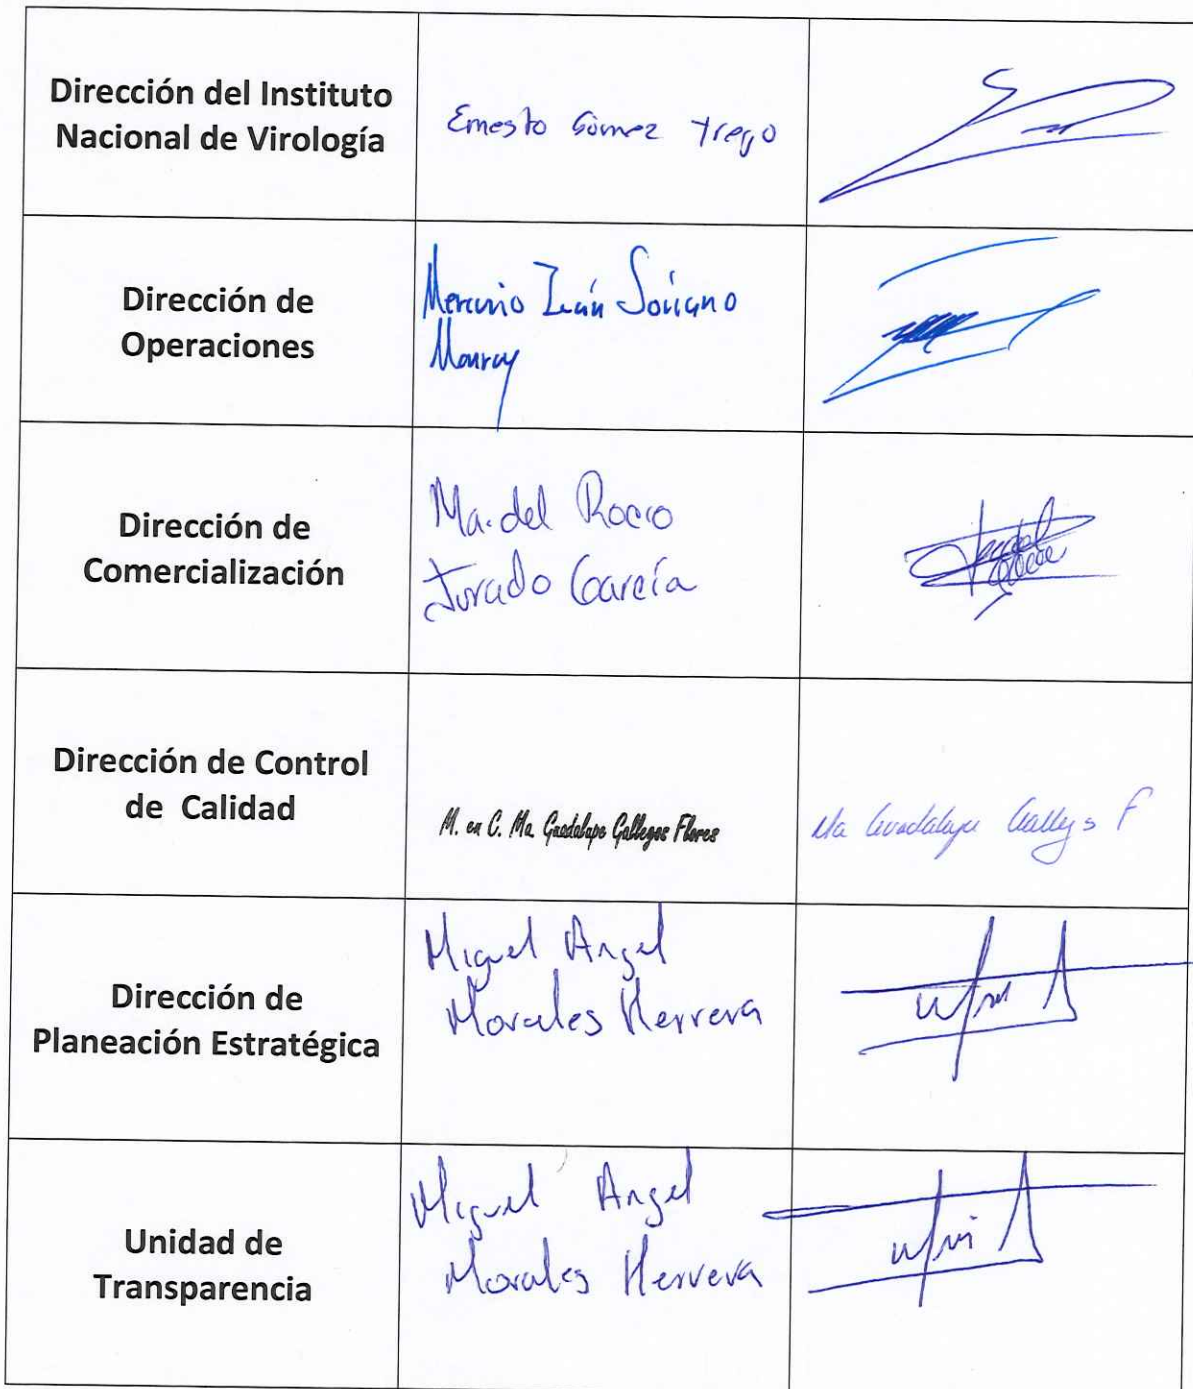 Dirección del Instituto
Nacional de Virología
Ernesto Gómez Trego
Dirección de
Operaciones
Iván Soriano
Monroy
Dirección de
Comercialización
Ma. del Rocio
Jurado García
Dirección de Control
de Calidad
M. en C. Ma. Guadalupe Gallegos Flores
Ma Guadalupe Gallegos F
Dirección de
Planeación Estratégica
Miguel Angel
Morales Herrera
Unidad de
Transparencia
Miguel Angel
Morales Herrera